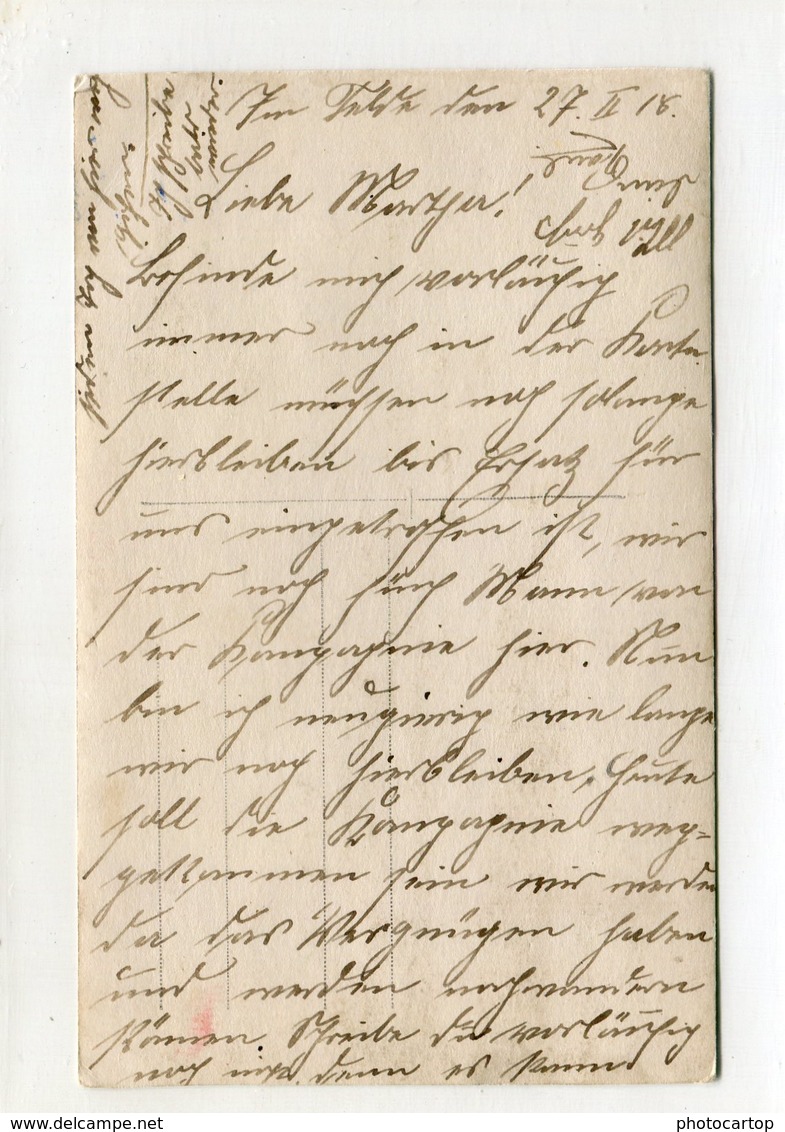 Im Felde den 27. II 18.
Liebe Martha!
Befinde mich vorläufig
immer noch in der Korte
stelle müssen noch solange
hierbleiben bis Ersatz für
uns eingetroffen ist, wir
sind noch fünf Mann von
der Kompagnie hier. Nun
bin ich neugierig wie lange
wir noch hierbleiben, heute
soll die Kompagnie weg=
gekommen sein wir werden
da das Vergnügen haben
und werden nachwandern
können. Schreibe du vorläufig
noch nicht denn es kann
jeden Tag von hier weg
gehen.
Ich schreibe
bald
wieder.
Gruß
Dein
Will
photocartop